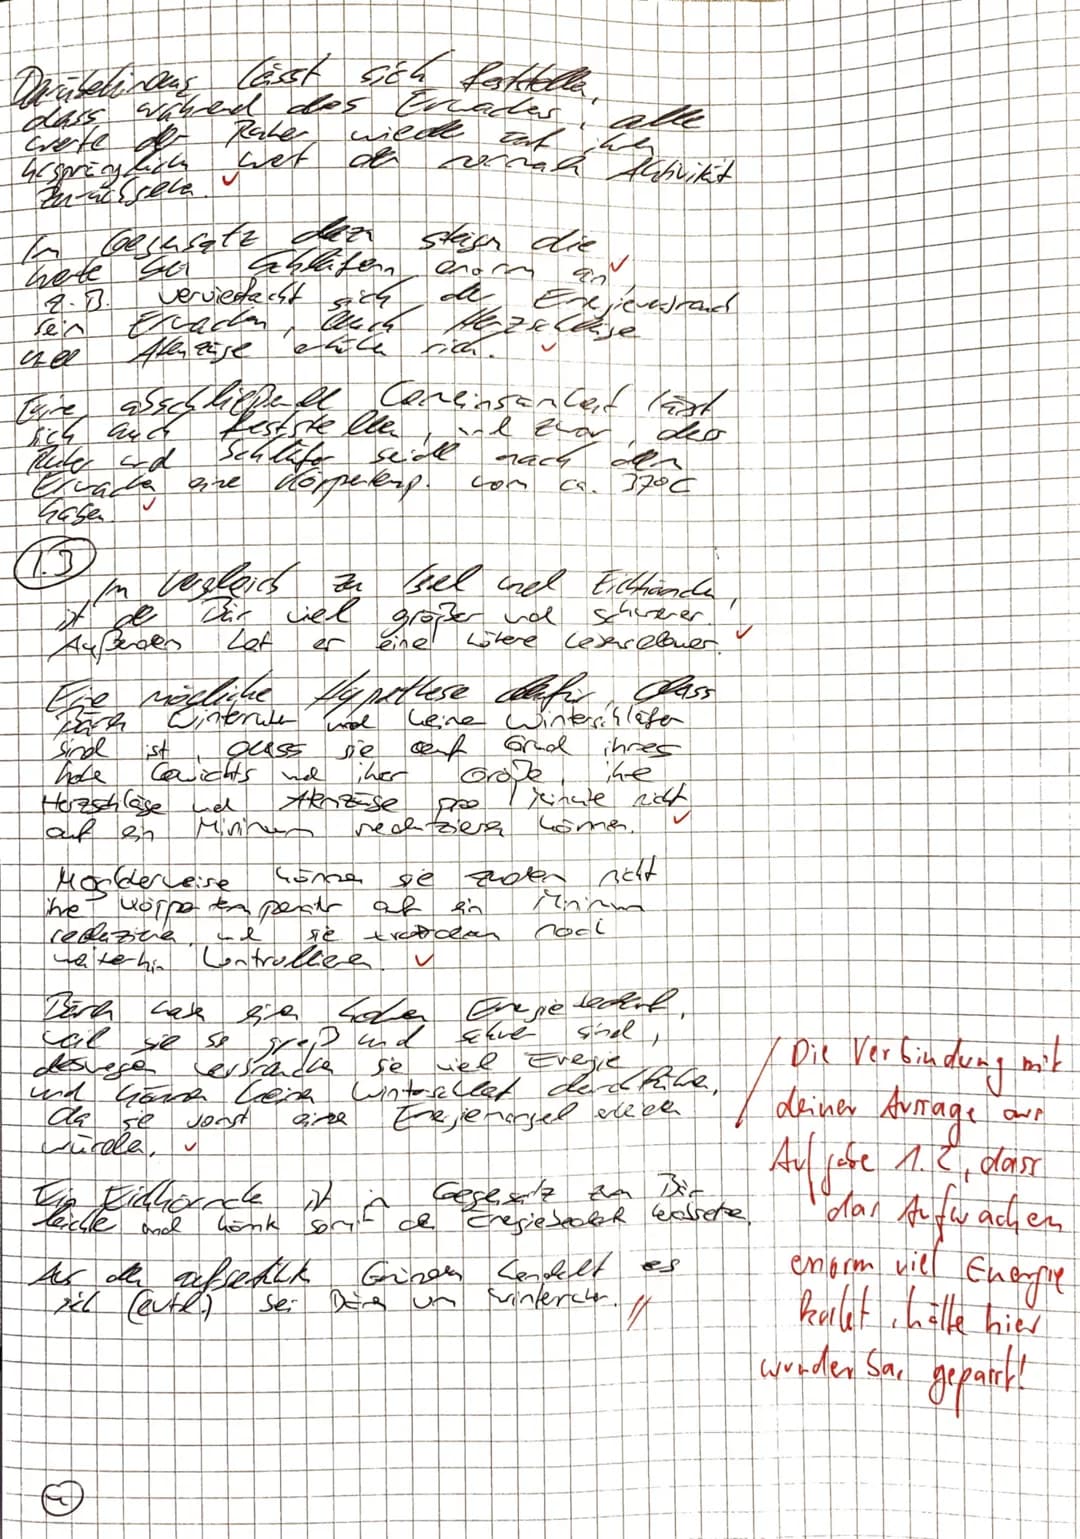 Darüberhinaus lässt sich feststellen,
dass während des Erwachens, alle
werte der Ruher wieder auf ihren
ursprünglich wert der normalen Aktivität
zurückgehen.
Im Gegensatz dazu steigen die
werte bei Schläfern enorm an
z.B. vervierfacht sich der
sein Erwachen, Auch Herzschläge
und Atemzüge erhöhen sich.
Eine abschließende Gemeinsamkeit lässt
sich auch feststellen, und zwar, dass
Ruher und Schläfer beide nach dem
Erwachen eine Körpertemp. von ca. 37°C
haben.
1.3
Im Vergleich zu Igel und Eichhörnchen,
ist der Bär viel größer und schwerer.
Außerdem hat er eine höhere Lebensdauer.
Eine mögliche Hypothese dafür, dass
Bären Winterruher und keine Winterschläfer
sind ist, dass sie auf Grund ihres
hohe Gewichts und ihrer Größe, ihre
Herzschläge und Atemzüge pro Minute nicht
auf ein Minimum reduzieren können.
können sie zudem nicht
ihre auf ein Minimum
reduzieren, und sie trotzdem noch
weiterhin kontrollieren.
Bären haben einen hohen Energiebedarf,
weil sie so groß und schwer sind,
deswegen verbrauchen sie viel Energie
und können keinen Winterschlaf durchführen,
da sie sonst einen Energiemangel erleiden
würden.
Ein Eichhörnchen ist im Gegensatz zum Bär
leichter und könnte somit den Energiebedarf
Aus den Gründen handelt es
sich (evtl.) bei Bären um Winterruher.
Die Verbindung mit
deiner Aussage aus
Aufgabe 1.2, dass
das Aufwachen
enorm viel Energie
kostet, hätte hier
wunderbar gepasst!